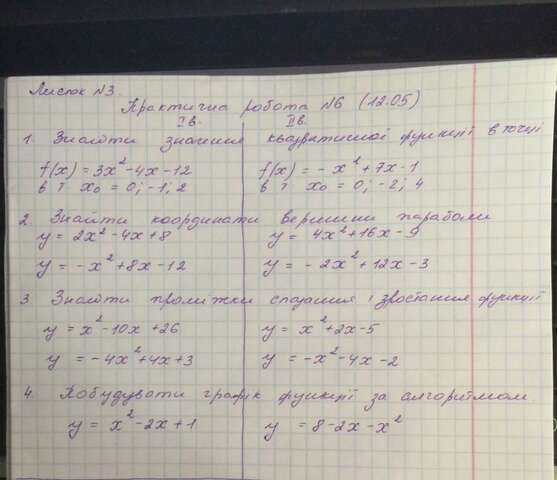 Листок №3.
Практична робота №6 (12.05)
Iв. IIв.
1. Знайти значення квадратичної функції в точці
f(x) = 3x²-4x-12 f(x) = -x²+7x-1
в т. x₀ = 0; -1; 2 в т. x₀ = 0; -2; 4
2. Знайти координати вершини параболи
y = 2x²-4x+8 y = 4x²+16x-9
y = -x²+8x-12 y = -2x²+12x-3
3 Знайти проміжки спадання і зростання функції
y = x²-10x+26 y = x²+2x-5
y = -4x²+4x+3 y = -x²-4x-2
4. Побудувати графік функції за алгоритмом
y = x²-2x+1 y = 8-2x-x²